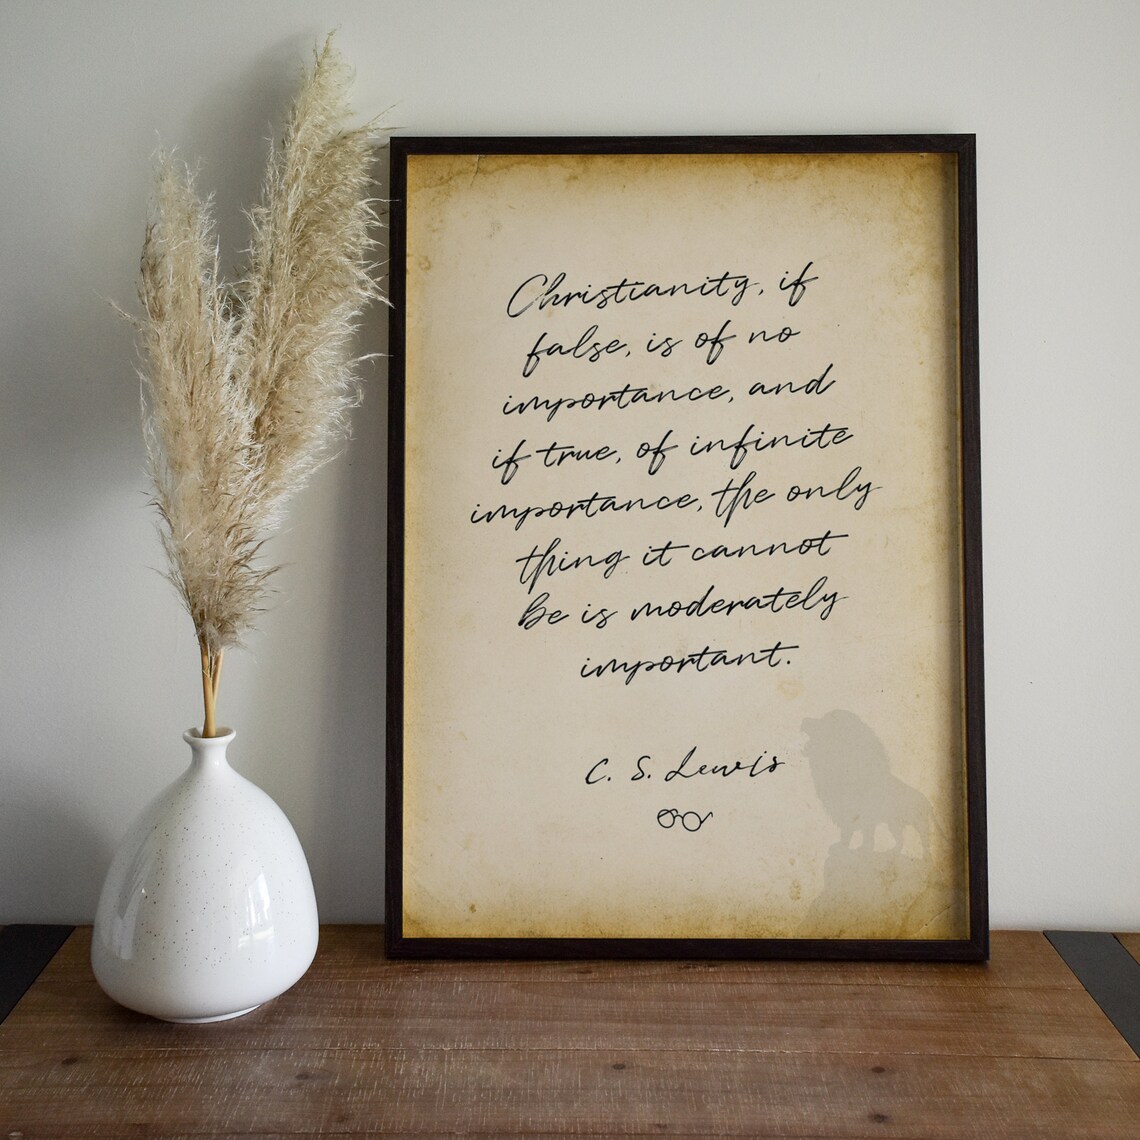 Christianity, if
false, is of no
importance, and
if true, of infinite
importance, the only
thing it cannot
be is moderately
important.
C. S. Lewis